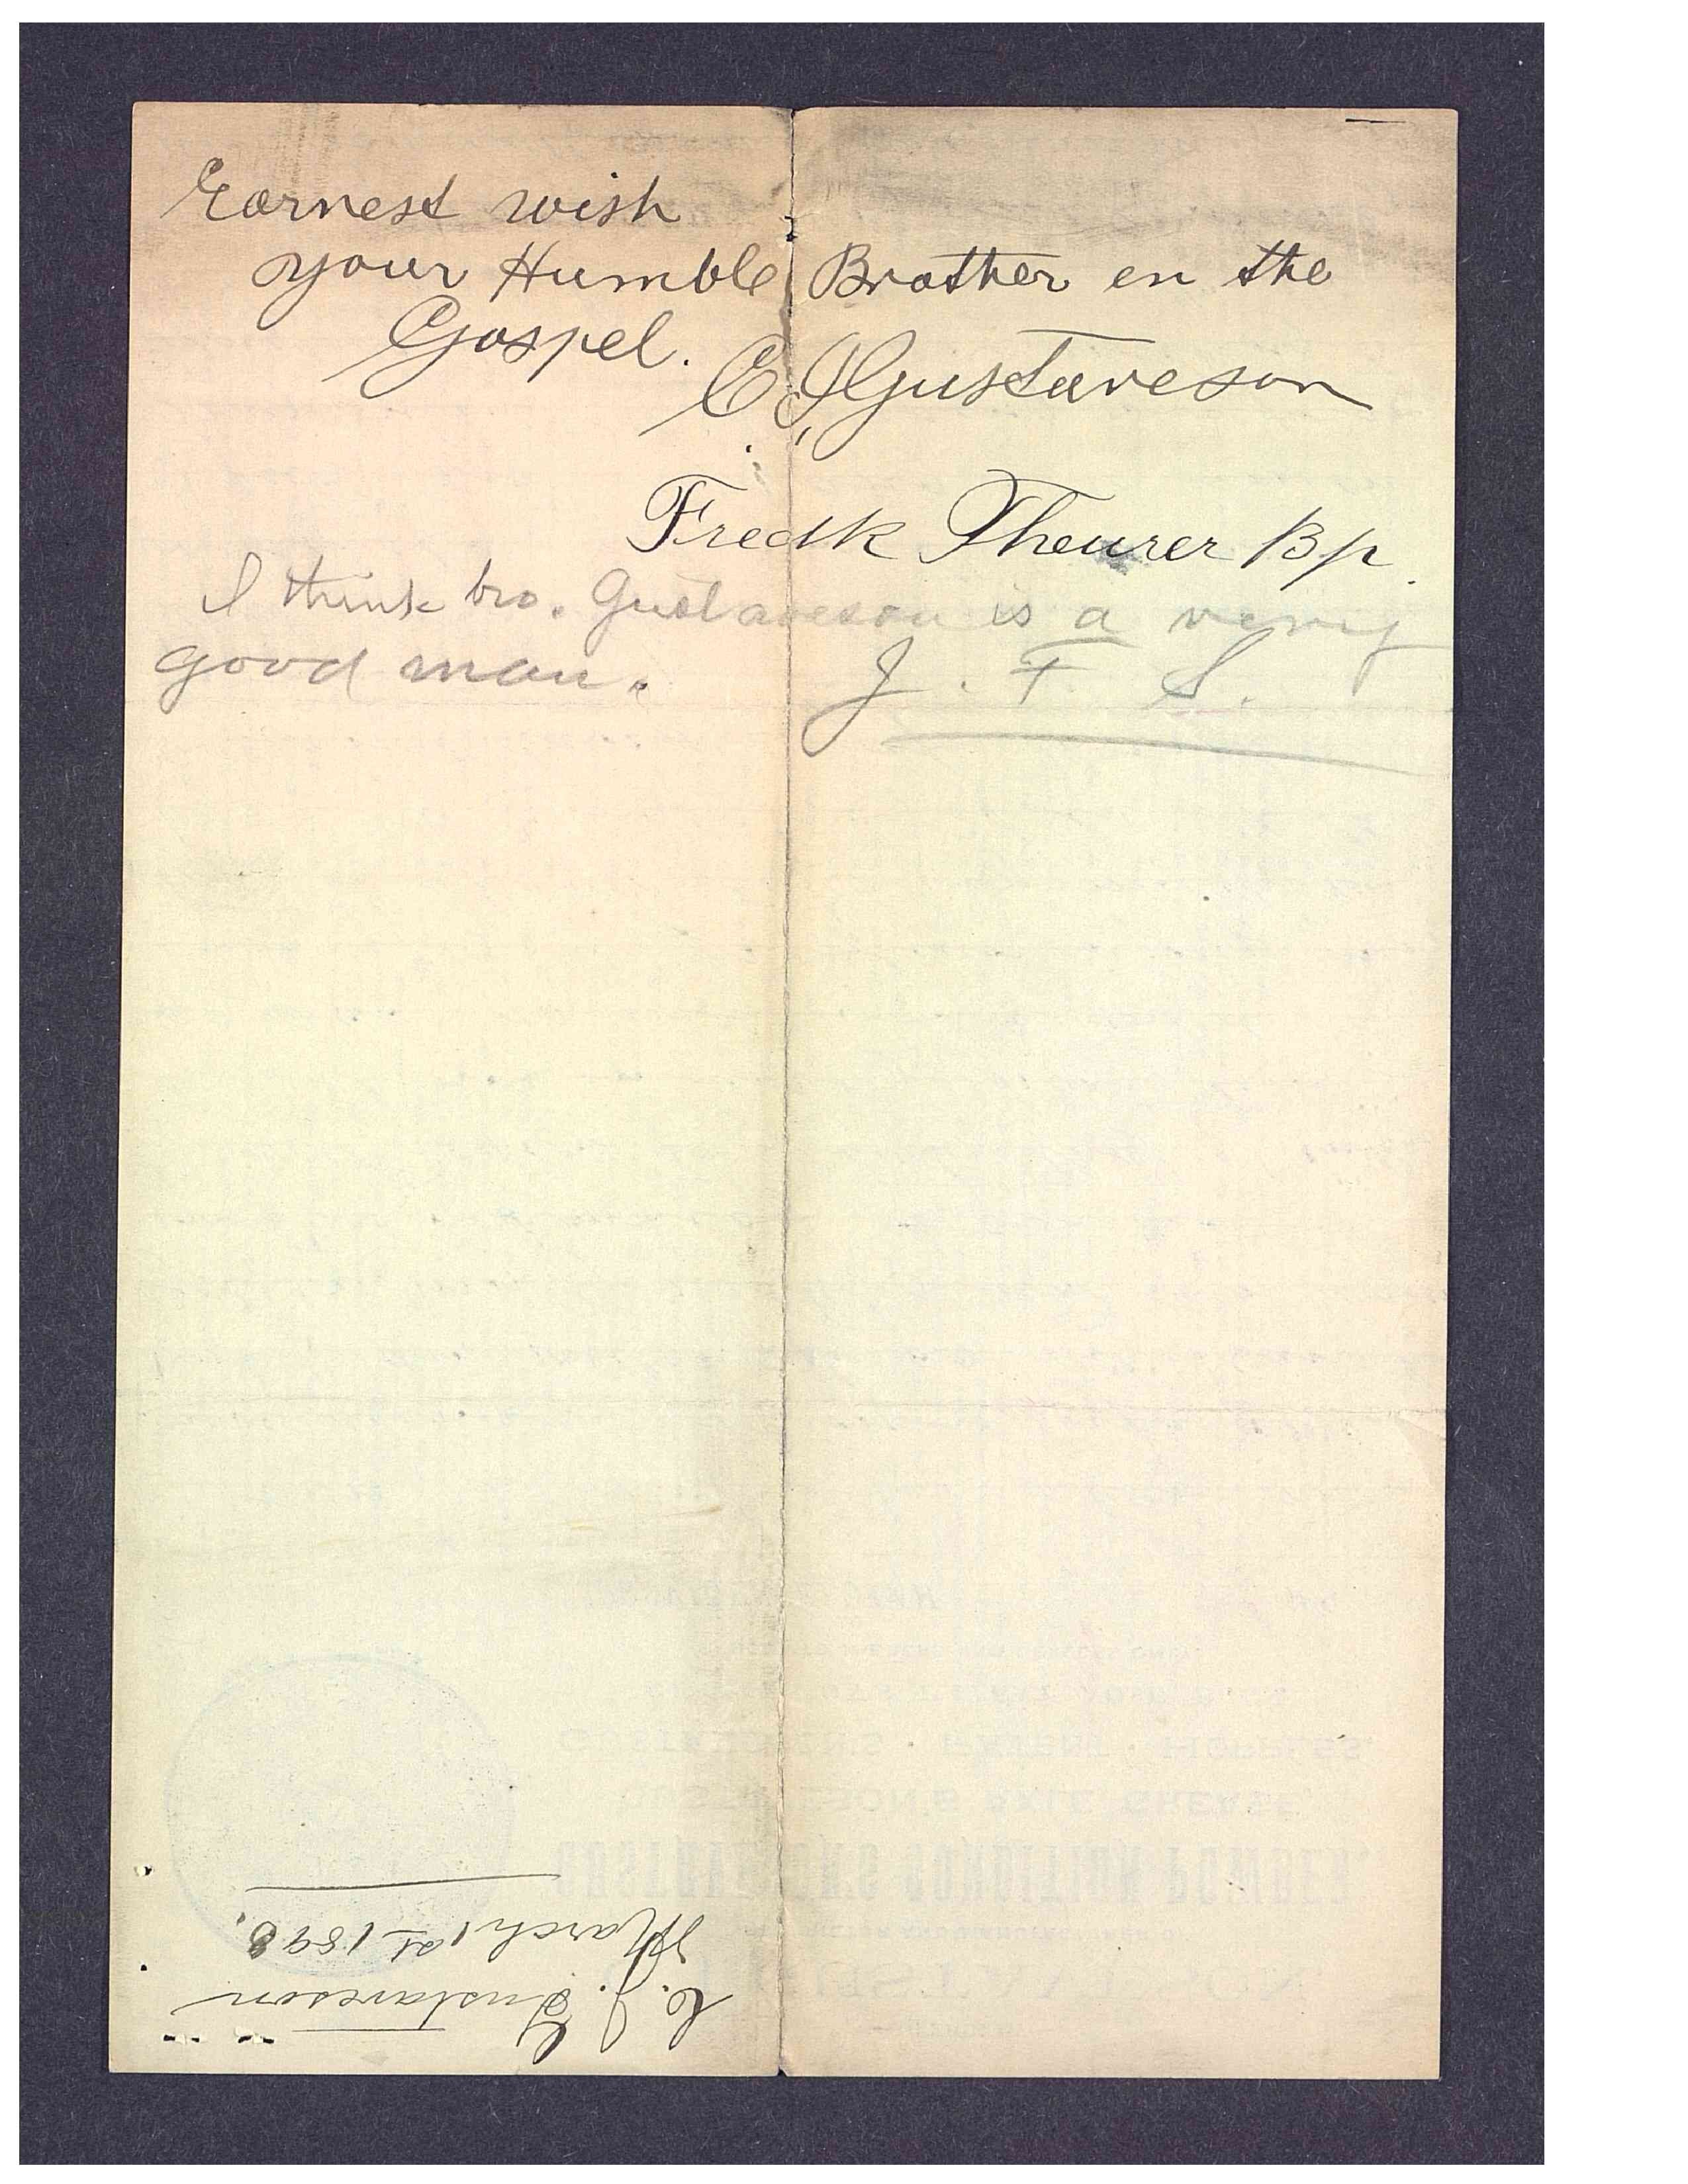 Earnest wish
your Humble Brother en the
Gospel.
E, J Gustaveson
Fredk Theurer Bp.
I think bro. Gustaveson is a very
good man.
J. F. S.
C. J. Gustaveson
March 1st 1898.